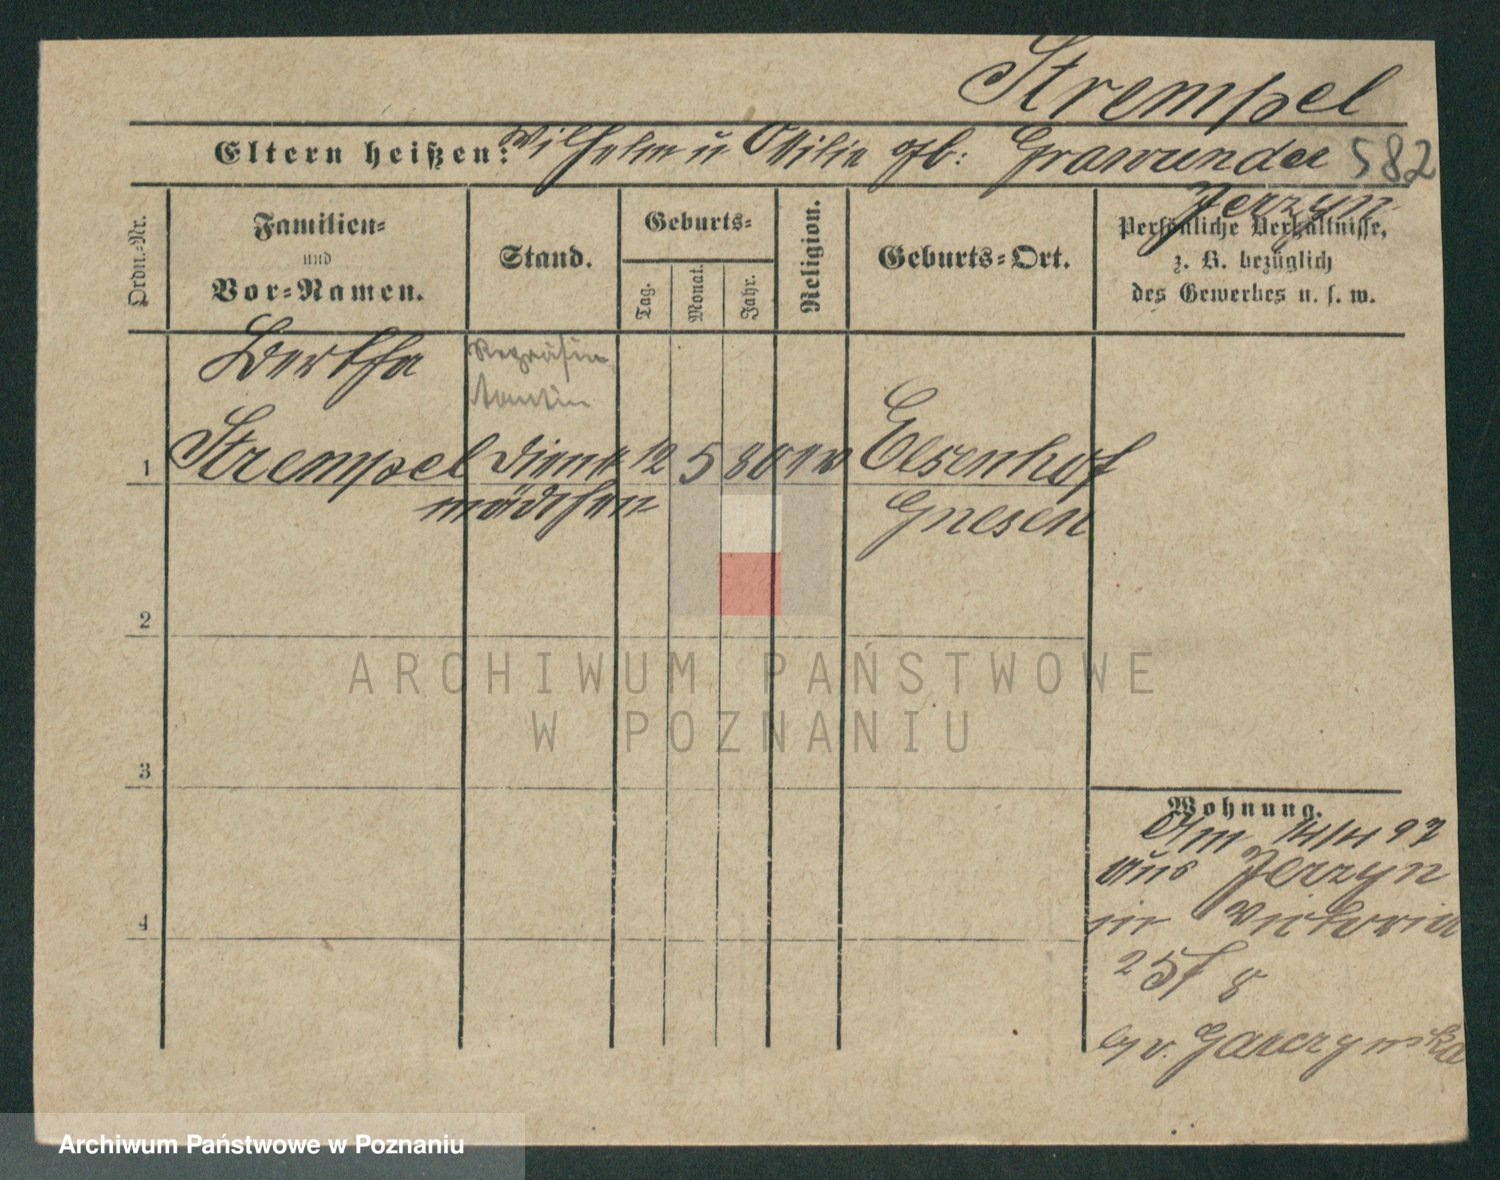 Strempel
Eltern heißen: Wilhelm u Ottilie geb: Grawunder 582
Jerzyn
Ordn.-Nr.
Familien-
und
Vor-Namen.
Stand.
Geburts-
Tag.
Monat.
Jahr.
Religion.
Geburts-Ort.
Persönliche Verhältnisse,
z. B. bezüglich
des Gewerbes u. s. w.
Bertha
1 Strempel Dienst 12 5 80 Elsenhof
mädchen Gnesen
2
3
4
Wohnung.
Am 14/4 97
aus Jerzyn
in Victoria
25 8
b/ v. Garczynska
ARCHIWUM PAŃSTWOWE
W POZNANIU
Archiwum Państwowe w Poznaniu